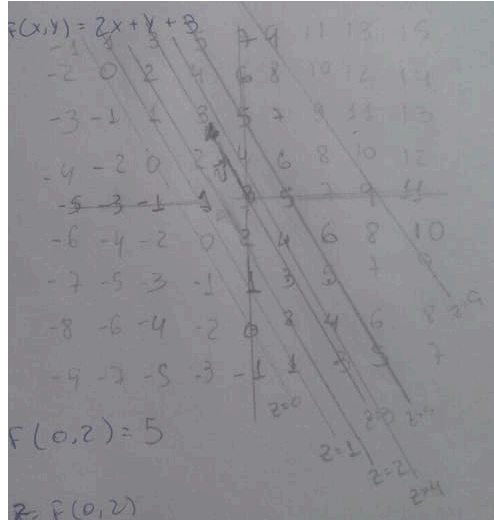 F(x,y) = 2x + y + 3
-1 1 3 5 7 9 11 13 15
-2 0 2 4 6 8 10 12 14
-3 -1 1 3 5 7 9 11 13
-4 -2 0 2 4 6 8 10 12
-5 -3 -1 1 3 5 7 9 11
-6 -4 -2 0 2 4 6 8 10
-7 -5 -3 -1 1 3 5 7 9
-8 -6 -4 -2 0 2 4 6 8
-9 -7 -5 -3 -1 1 3 5 7
z=9
z=0 z=3 z=5
z=1
F(0,2) = 5
z=2
z=4
z= F(0,2)